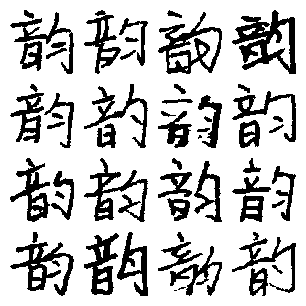 韵韵韵韵
韵韵韵韵
韵韵韵韵
韵韵韵韵